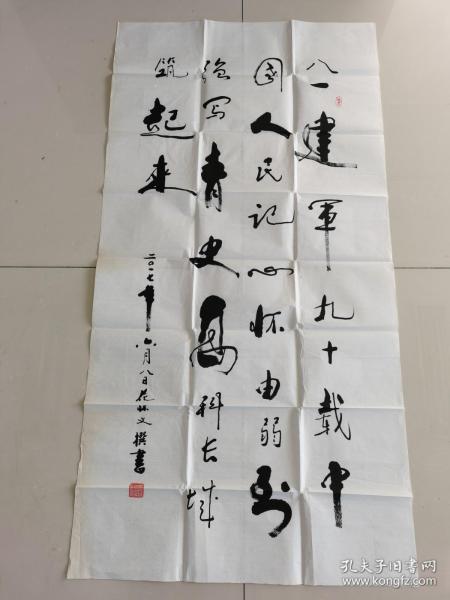 八一建军九十载中
國人民记心怀由弱到
强写青史高科长城
筑起来
二〇一七年六月八日花怀文撰書
孔夫子旧书网
www.kongfz.com